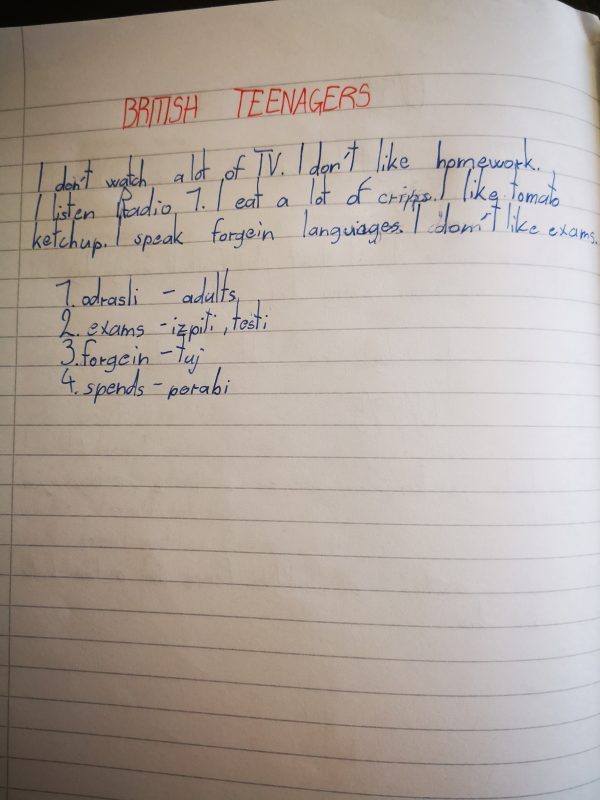 BRITISH TEENAGERS
I don't watch a lot of TV. I don't like homework.
I listen Radio 1. I eat a lot of cripps. I like tomato
ketchup. I speak forgein languages. I don't like exams.
1. odrasli - adults
2. exams - izpiti, testi
3. forgein - tuj
4. spends - porabi